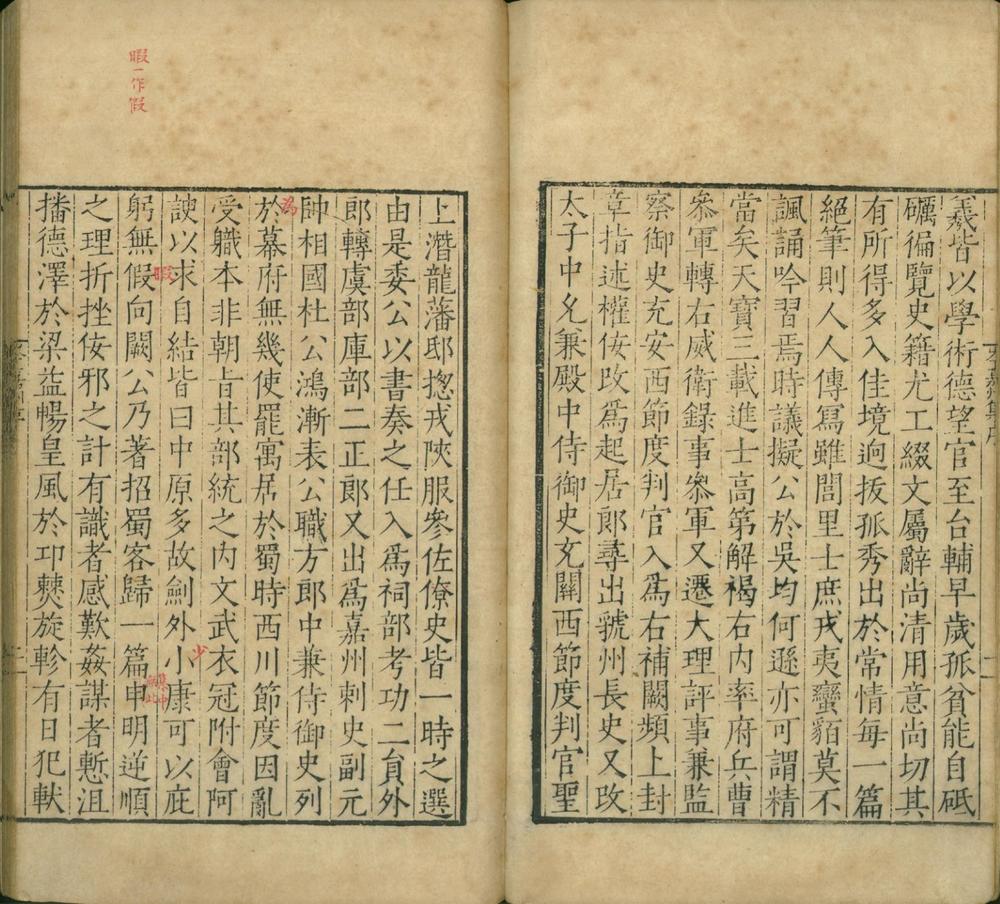 羲皆以學術德望官至台輔早歲孤貧能自砥
礪徧覽史籍尤工綴文屬辭尚清用意尚切其
有所得多入佳境逈拔孤秀出於常情每一篇
絕筆則人人傳寫雖閭里士庶戎夷蠻貊莫不
諷誦吟習焉時議擬公於吳均何遜亦可謂精
當矣天寶三載進士高第解褐右内率府兵曹
叅軍轉右威衛錄事叅軍又遷大理評事兼監
察御史充安西節度判官入爲右補闕頻上封
章指述權佞改爲起居郎尋出虢州長史又改
太子中允兼殿中侍御史充關西節度判官聖
上潛龍藩邸揔戎陝服叅佐僚史皆一時之選
由是委公以書奏之任入爲祠部考功二負外
郎轉虞部庫部二正郎又出爲嘉州刺史副元
帥相國杜公鴻漸表公職方郎中兼侍御史列
爲
於幕府無幾使罷寓居於蜀時西川節度因亂
受職本非朝旨其部統之内文武衣冠附會阿
諛以求自結皆曰中原多故劍外小康可以庇
少
躬無假向闕公乃著招蜀客歸一篇申明逆順
暇
暇一作假
之理折挫佞邪之計有識者感歎姦謀者慙沮
播德澤於梁益暢皇風於卭僰旋軫有日犯軷